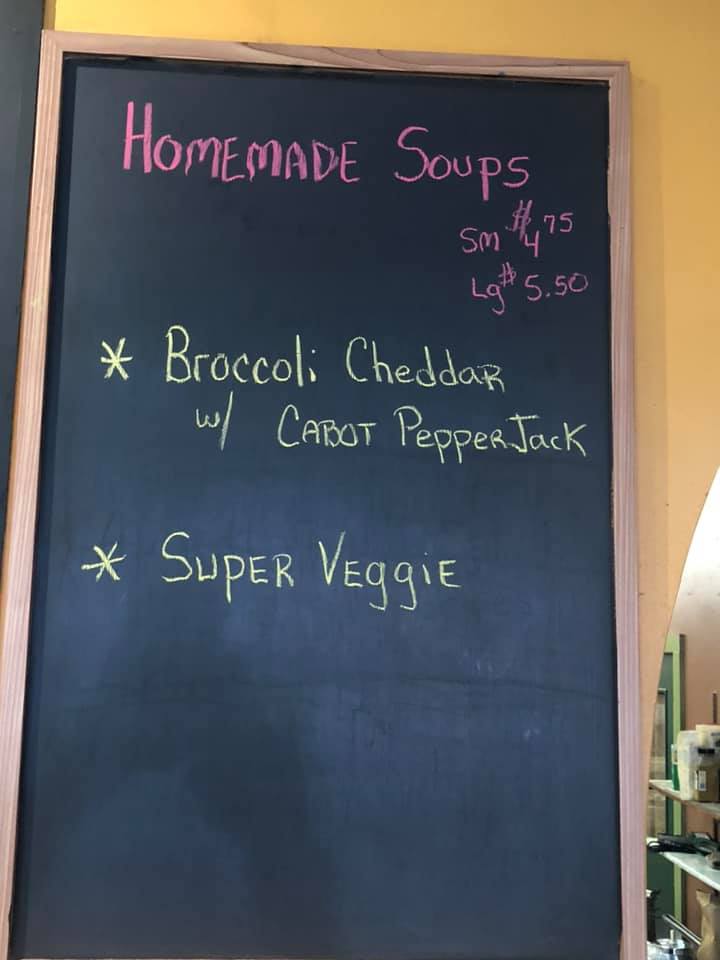 HOMEMADE SOUPS
SM $4.75
Lg $5.50
* BROCCOLI CHEDDAR
w/ CABOT PEPPERJACK
* SUPER VEGGIE